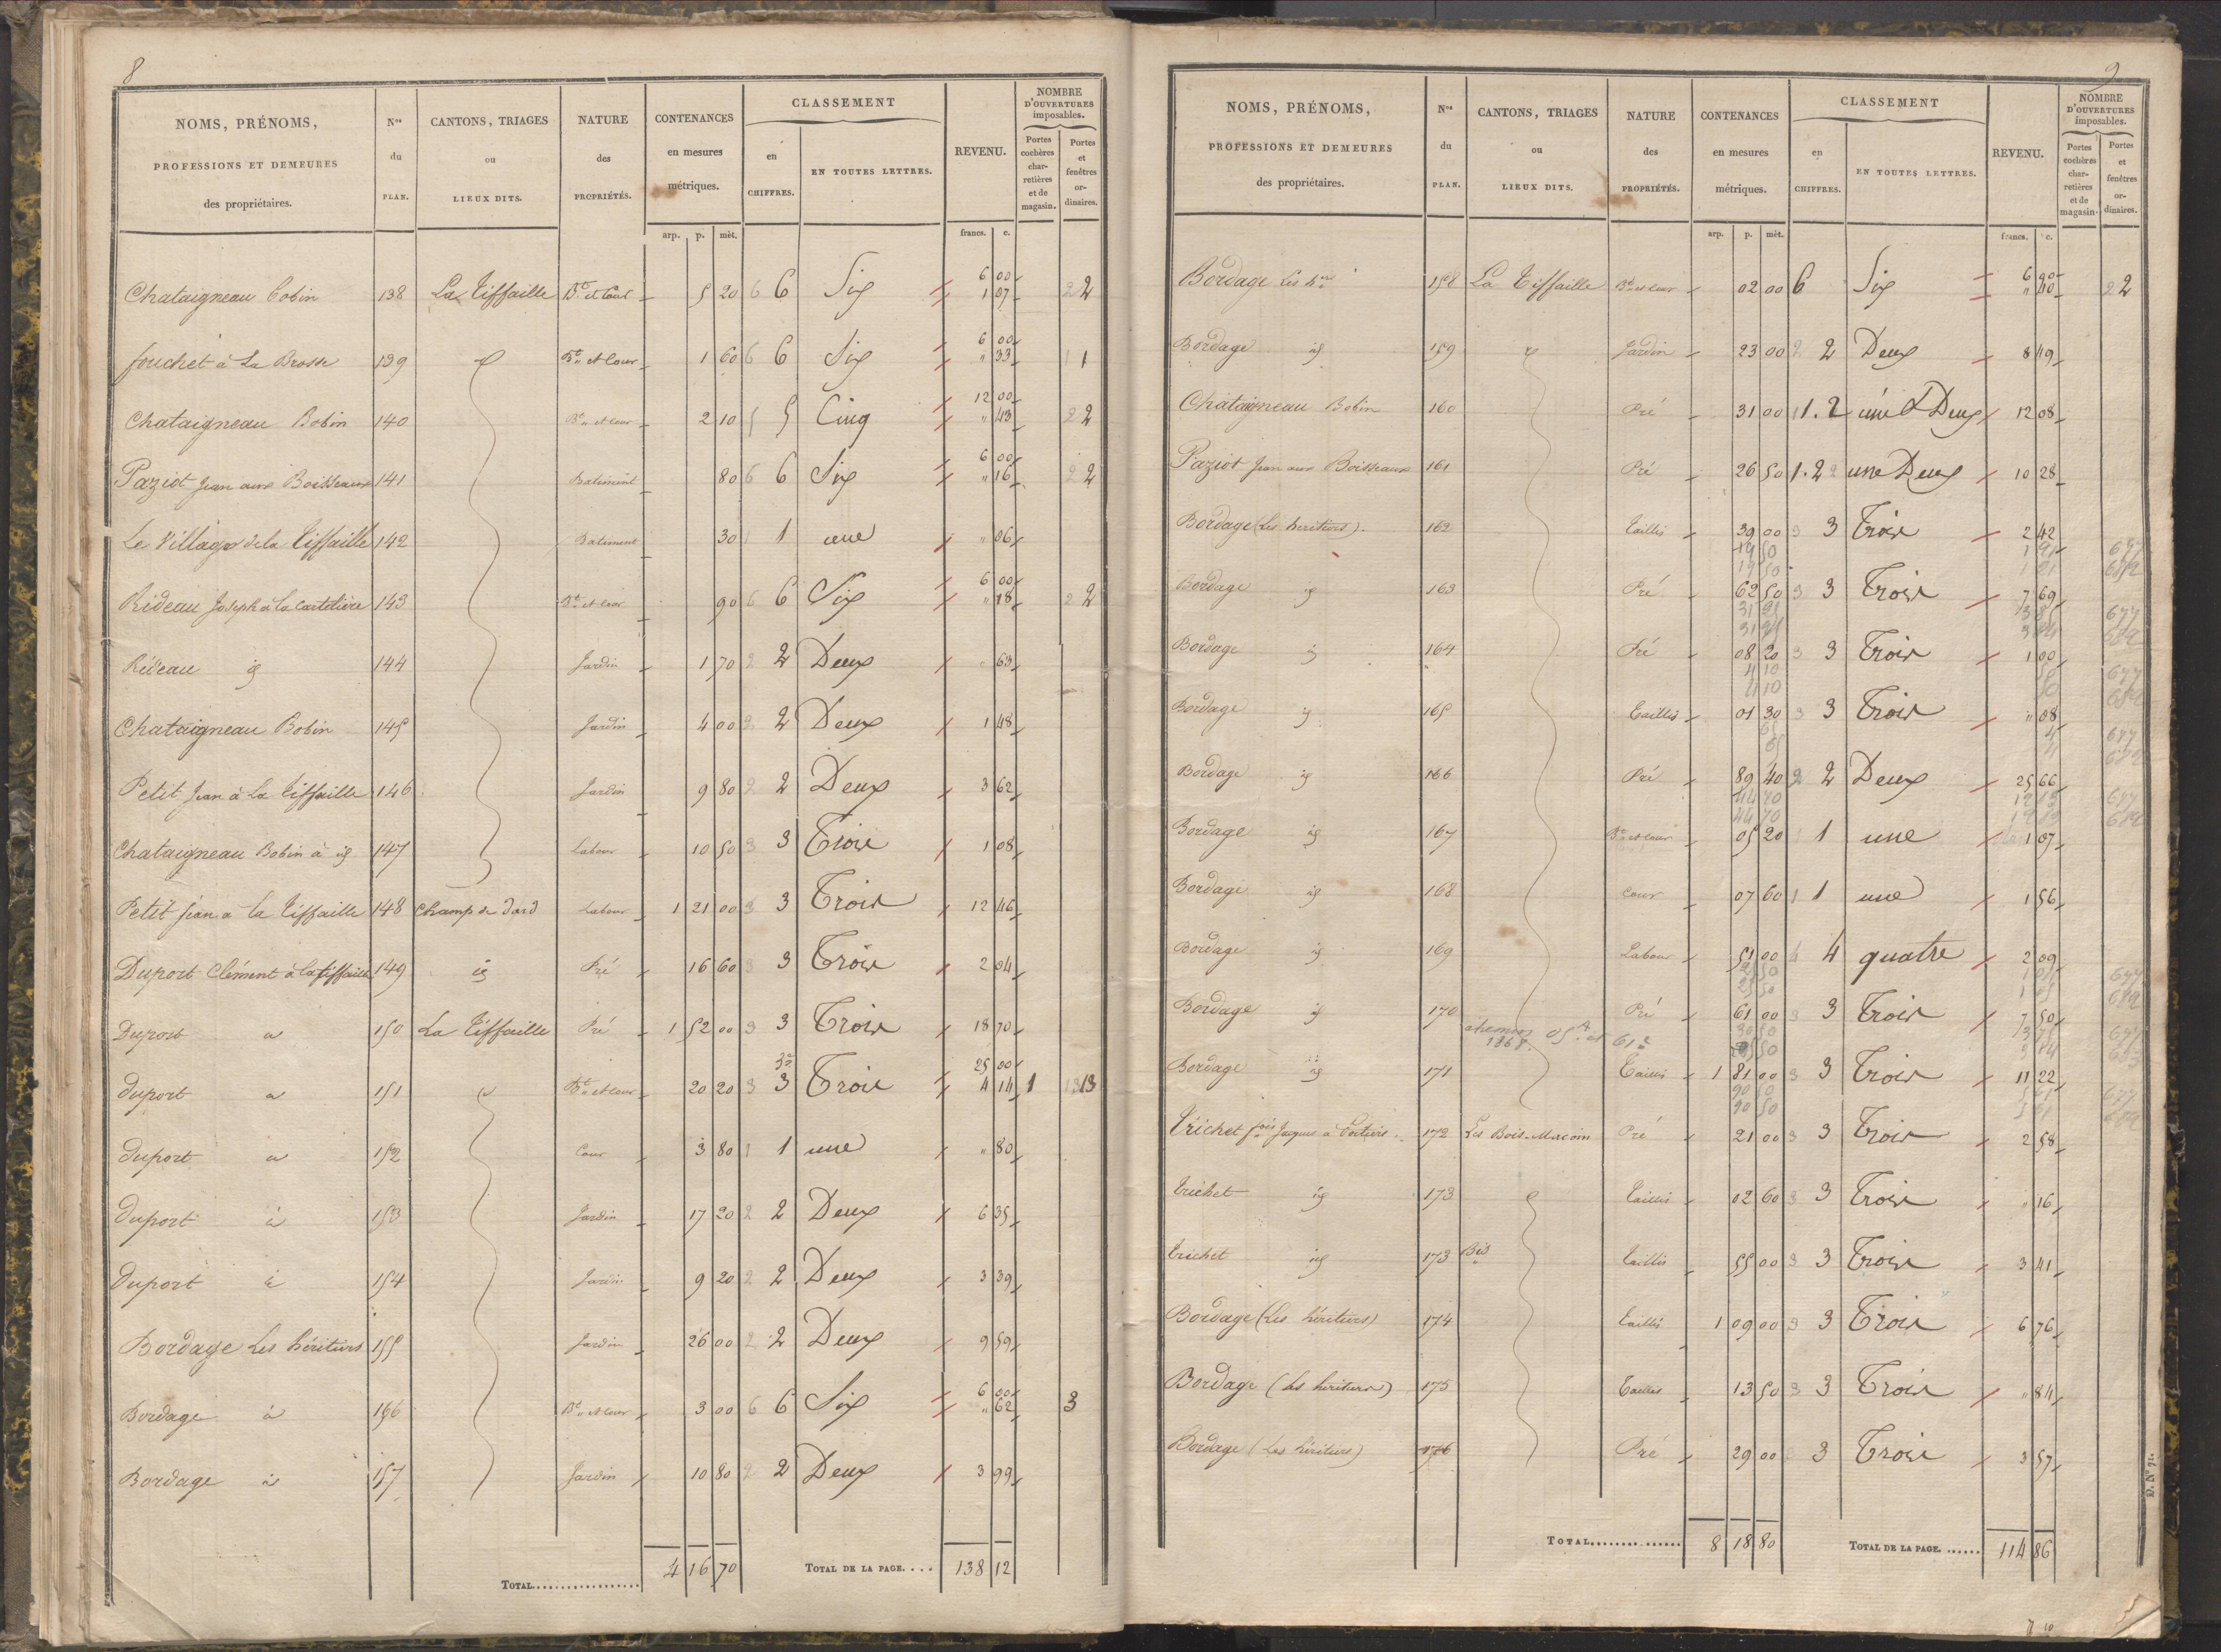 8
NOMS, PRÉNOMS, PROFESSIONS ET DEMEURES des propriétaires. Nos du PLAN. CANTONS, TRIAGES ou LIEUX DITS. NATURE des PROPRIÉTÉS. CONTENANCES en mesures métriques. CLASSEMENT en CHIFFRES. EN TOUTES LETTRES. REVENU. NOMBRE D'OUVERTURES imposables. Portes cochères charretières et de magasin. Portes et fenêtres ordinaires.
arp. p. mèt. francs. c.
6 00
Chataigneau Bobin 138 La Tiffaille Bt et Cour 5 20 6 6 Six 1 07 2 2
6 00
fouchet à La Brosse 139 id Bt et Cour 1 60 6 6 Six " 33 1 1
12 00
Chataigneau Bobin 140 Bt et Cour 2 10 5 5 Cinq " 43 2 2
6 00
Paziot Jean aux Boisseaux 141 Batiment 80 6 6 Six " 16 2 2
Le Village de la Tiffaille 142 Batiment 30 1 1 une " 06
6 00
Rideau Joseph à la Cartelière 143 Bt et Cour 90 6 6 Six " 18 2 2
Rideau id 144 Jardin 1 70 2 2 Deux " 63
Chataigneau Bobin 145 Jardin 4 00 2 2 Deux 1 48
Petit Jean à la Tiffaille 146 Jardin 9 80 2 2 Deux 3 62
Chataigneau Bobin à id 147 Labour 10 50 3 3 Trois 1 08
Petit Jean à la Tiffaille 148 Champ de Dard Labour 1 21 00 3 3 Trois 12 46
Duport Clément à la tiffaille 149 id Pré 16 60 3 3 Trois 2 04
Duport id 150 La Tiffaille Pré 1 52 00 3 3 Trois 18 70
25 00
duport id 151 id Bt et Cour 20 20 3 3 Trois 4 14 1 13 13
duport id 152 Cour 3 80 1 1 une " 80
duport id 153 Jardin 17 20 2 2 Deux 6 35
duport id 154 Jardin 9 20 2 2 Deux 3 39
Bordage Les héritiers 155 Jardin 26 00 2 2 Deux 9 59
6 00
Bordage id 156 Bt et Cour 3 00 6 6 Six " 62 3
Bordage id 157 Jardin 10 80 2 2 Deux 3 99
TOTAL 4 16 70 TOTAL DE LA PAGE.... 138 12
9
NOMS, PRÉNOMS, PROFESSIONS ET DEMEURES des propriétaires. Nos du PLAN. CANTONS, TRIAGES ou LIEUX DITS. NATURE des PROPRIÉTÉS. CONTENANCES en mesures métriques. CLASSEMENT en CHIFFRES. EN TOUTES LETTRES. REVENU. NOMBRE D'OUVERTURES imposables. Portes cochères charretières et de magasin. Portes et fenêtres ordinaires.
arp. p. mèt. francs. c.
6 00
Bordage Les hers 158 La Tiffaille Bt et Cour 02 00 6 Six " 40 2 2
Bordage id 159 id Jardin 23 00 2 2 Deux 8 49
Chataigneau Bobin 160 Pré 31 00 1.2 une & Deux 12 08
Paziot Jean aux Boisseaux 161 Pré 26 50 1.2 une Deux 10 28
Bordage (Les heritiers). 162 Taillis 39 00 3 3 Trois 2 42
19 50 1 21 677
19 50 1 21 682
Bordage id 163 Pré 62 50 3 3 Trois 7 69
31 25 3 85 677
31 25 3 84 682
Bordage id 164 Pré 08 20 3 3 Trois 1 00
4 10 50 677
4 10 50 682
Bordage id 165 Taillis 01 30 3 3 Trois " 08
65 4 677
65 4 682
Bordage id 166 Pré 89 40 2 2 Deux 25 66
44 70 12 83 677
44 70 12 83 682
Bordage id 167 Bt et Cour 05 20 1 1 une 1 07
Bordage id 168 Cour 07 60 1 1 une 1 56
Bordage id 169 Labour 51 00 4 4 quatre 2 09
25 50 677
25 50 682
Bordage id 170 Pré 61 00 3 3 Trois 7 50
chemins 1868. 05
Bordage id 171 Taillis 1 81 00 3 3 Trois 11 22
90 50 5 61 677
90 50 5 61 682
Trichet fois Jacques à Poitiers 172 Les Bois-Macoin Pré 21 00 3 3 Trois 2 58
Trichet id 173 id Taillis 02 60 3 3 Trois " 16
Trichet id 173 Bis Taillis 55 00 3 3 Trois 3 41
Bordage (Les héritiers) 174 Taillis 1 09 00 3 3 Trois 6 76
Bordage (Les héritiers) 175 Taillis 13 50 3 3 Trois " 84
Bordage (Les héritiers) 176 Pré 29 00 3 Trois 3 57
TOTAL 8 18 80 TOTAL DE LA PAGE. 114 86
D. N° 71.